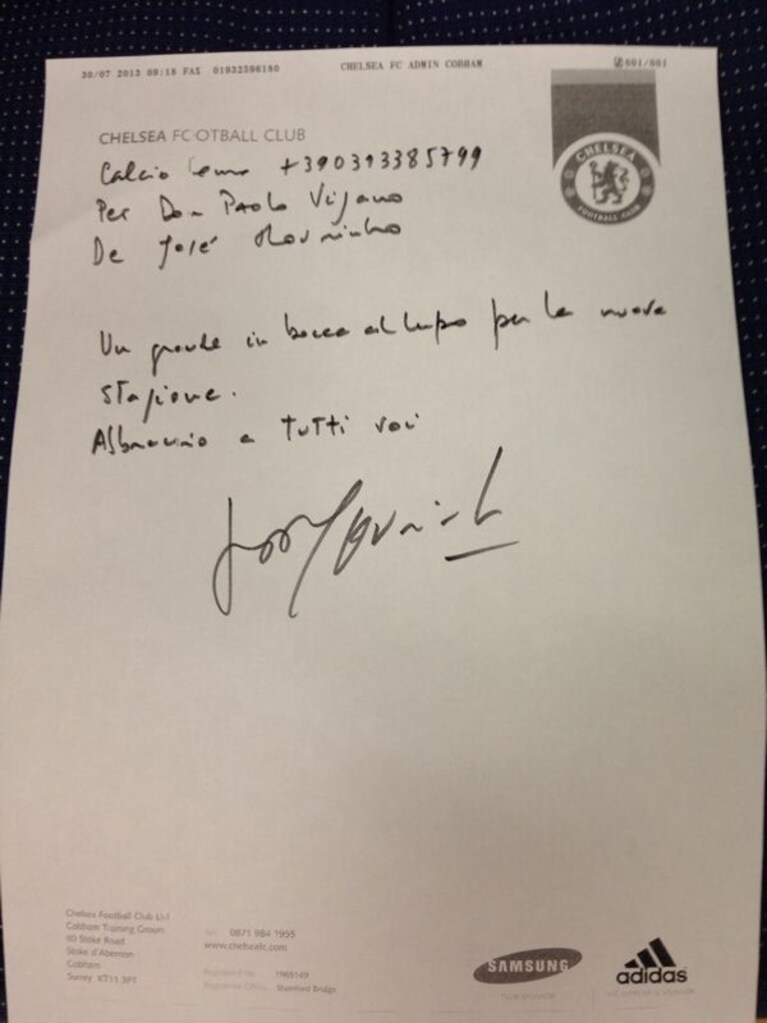 30/07 2013 09:18 FAX 01932596180 CHELSEA FC ADMIN COBHAM 001/001
CHELSEA FOOTBALL CLUB
CHELSEA
FOOTBALL CLUB
Calcio +390313385799
Per Don Paolo Viganò
De José Mourinho
Un grande in bocca al lupo per la nuova
stagione.
Abbraccio a tutti voi
Chelsea Football Club Ltd
Cobham Training Ground
60 Stoke Road
Stoke d'Abernon
Cobham
Surrey KT11 3PT
Tel: 0871 984 1955
www.chelseafc.com
Registered No. 1965149
Registered Office: Stamford Bridge
SAMSUNG
CLUB SPONSOR
adidas